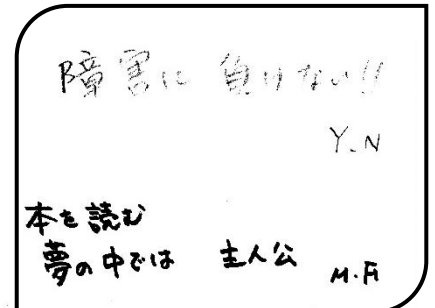 障害に 負けない!!
Y.N
本を読む
夢の中では 主人公
M.A